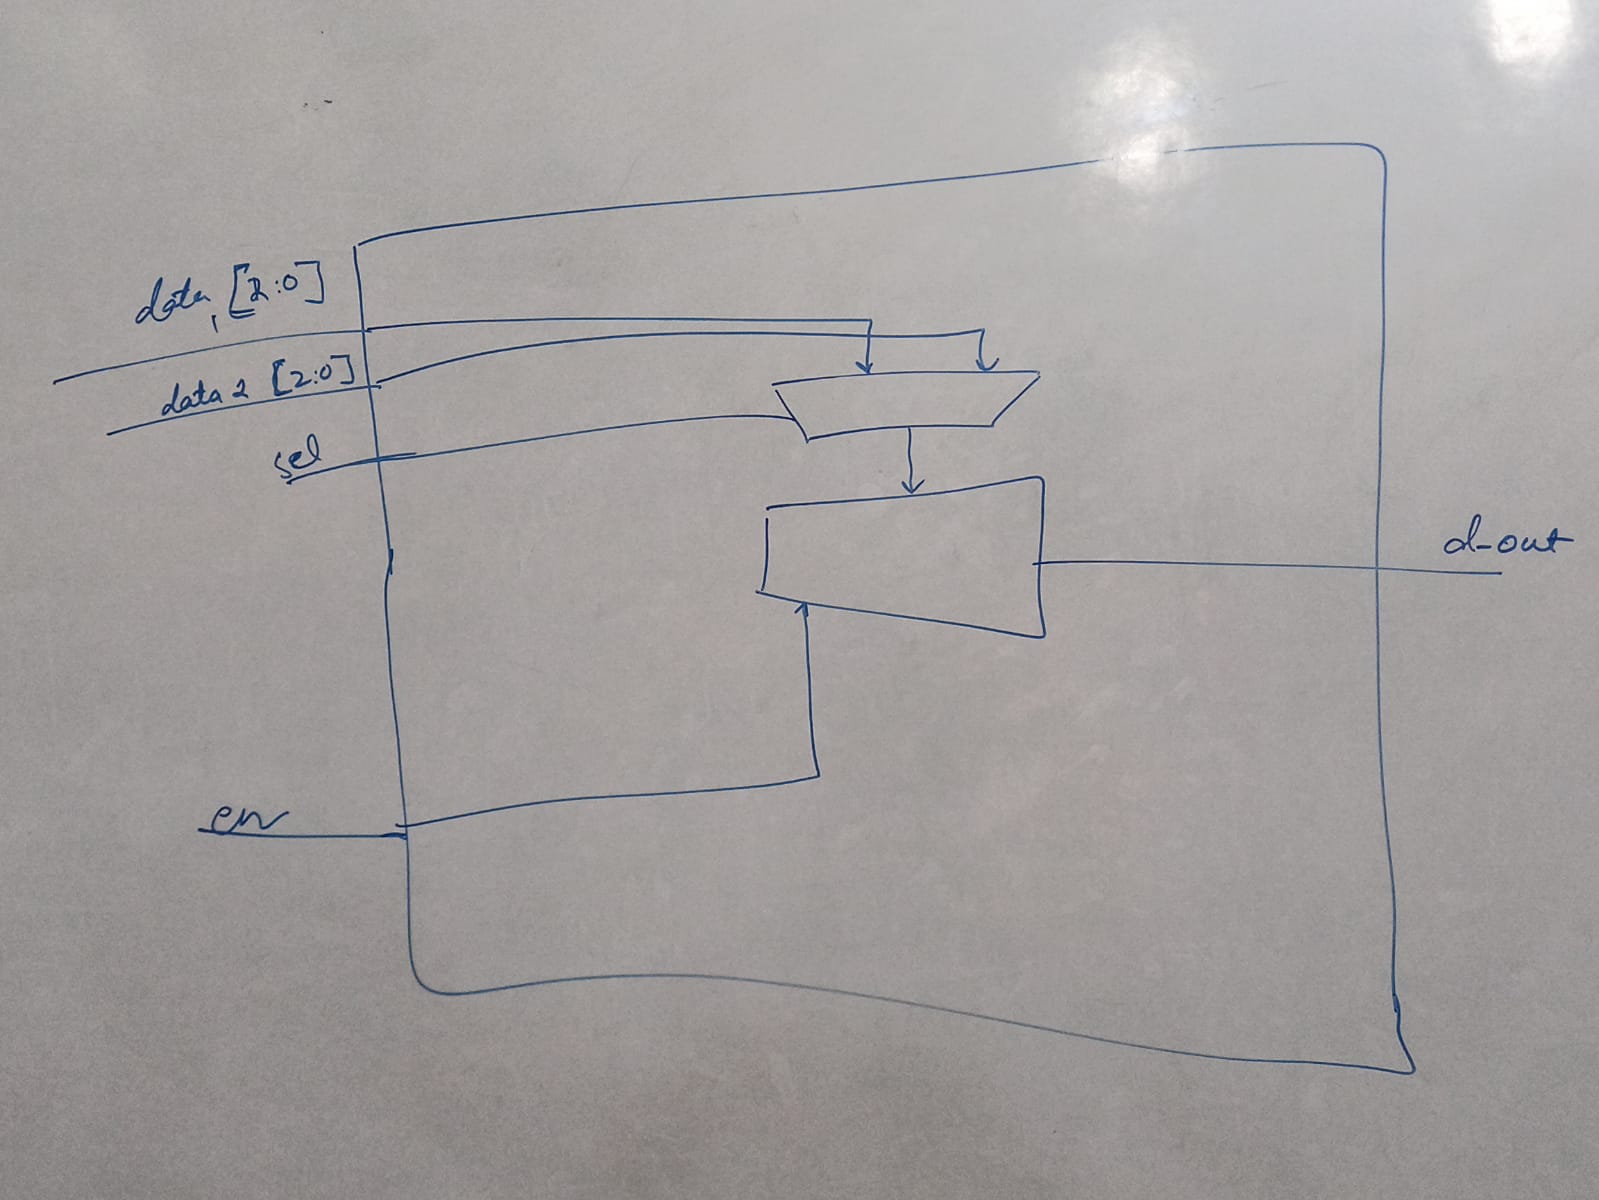 data1 [2:0]
data2 [2:0]
sel
d-out
en